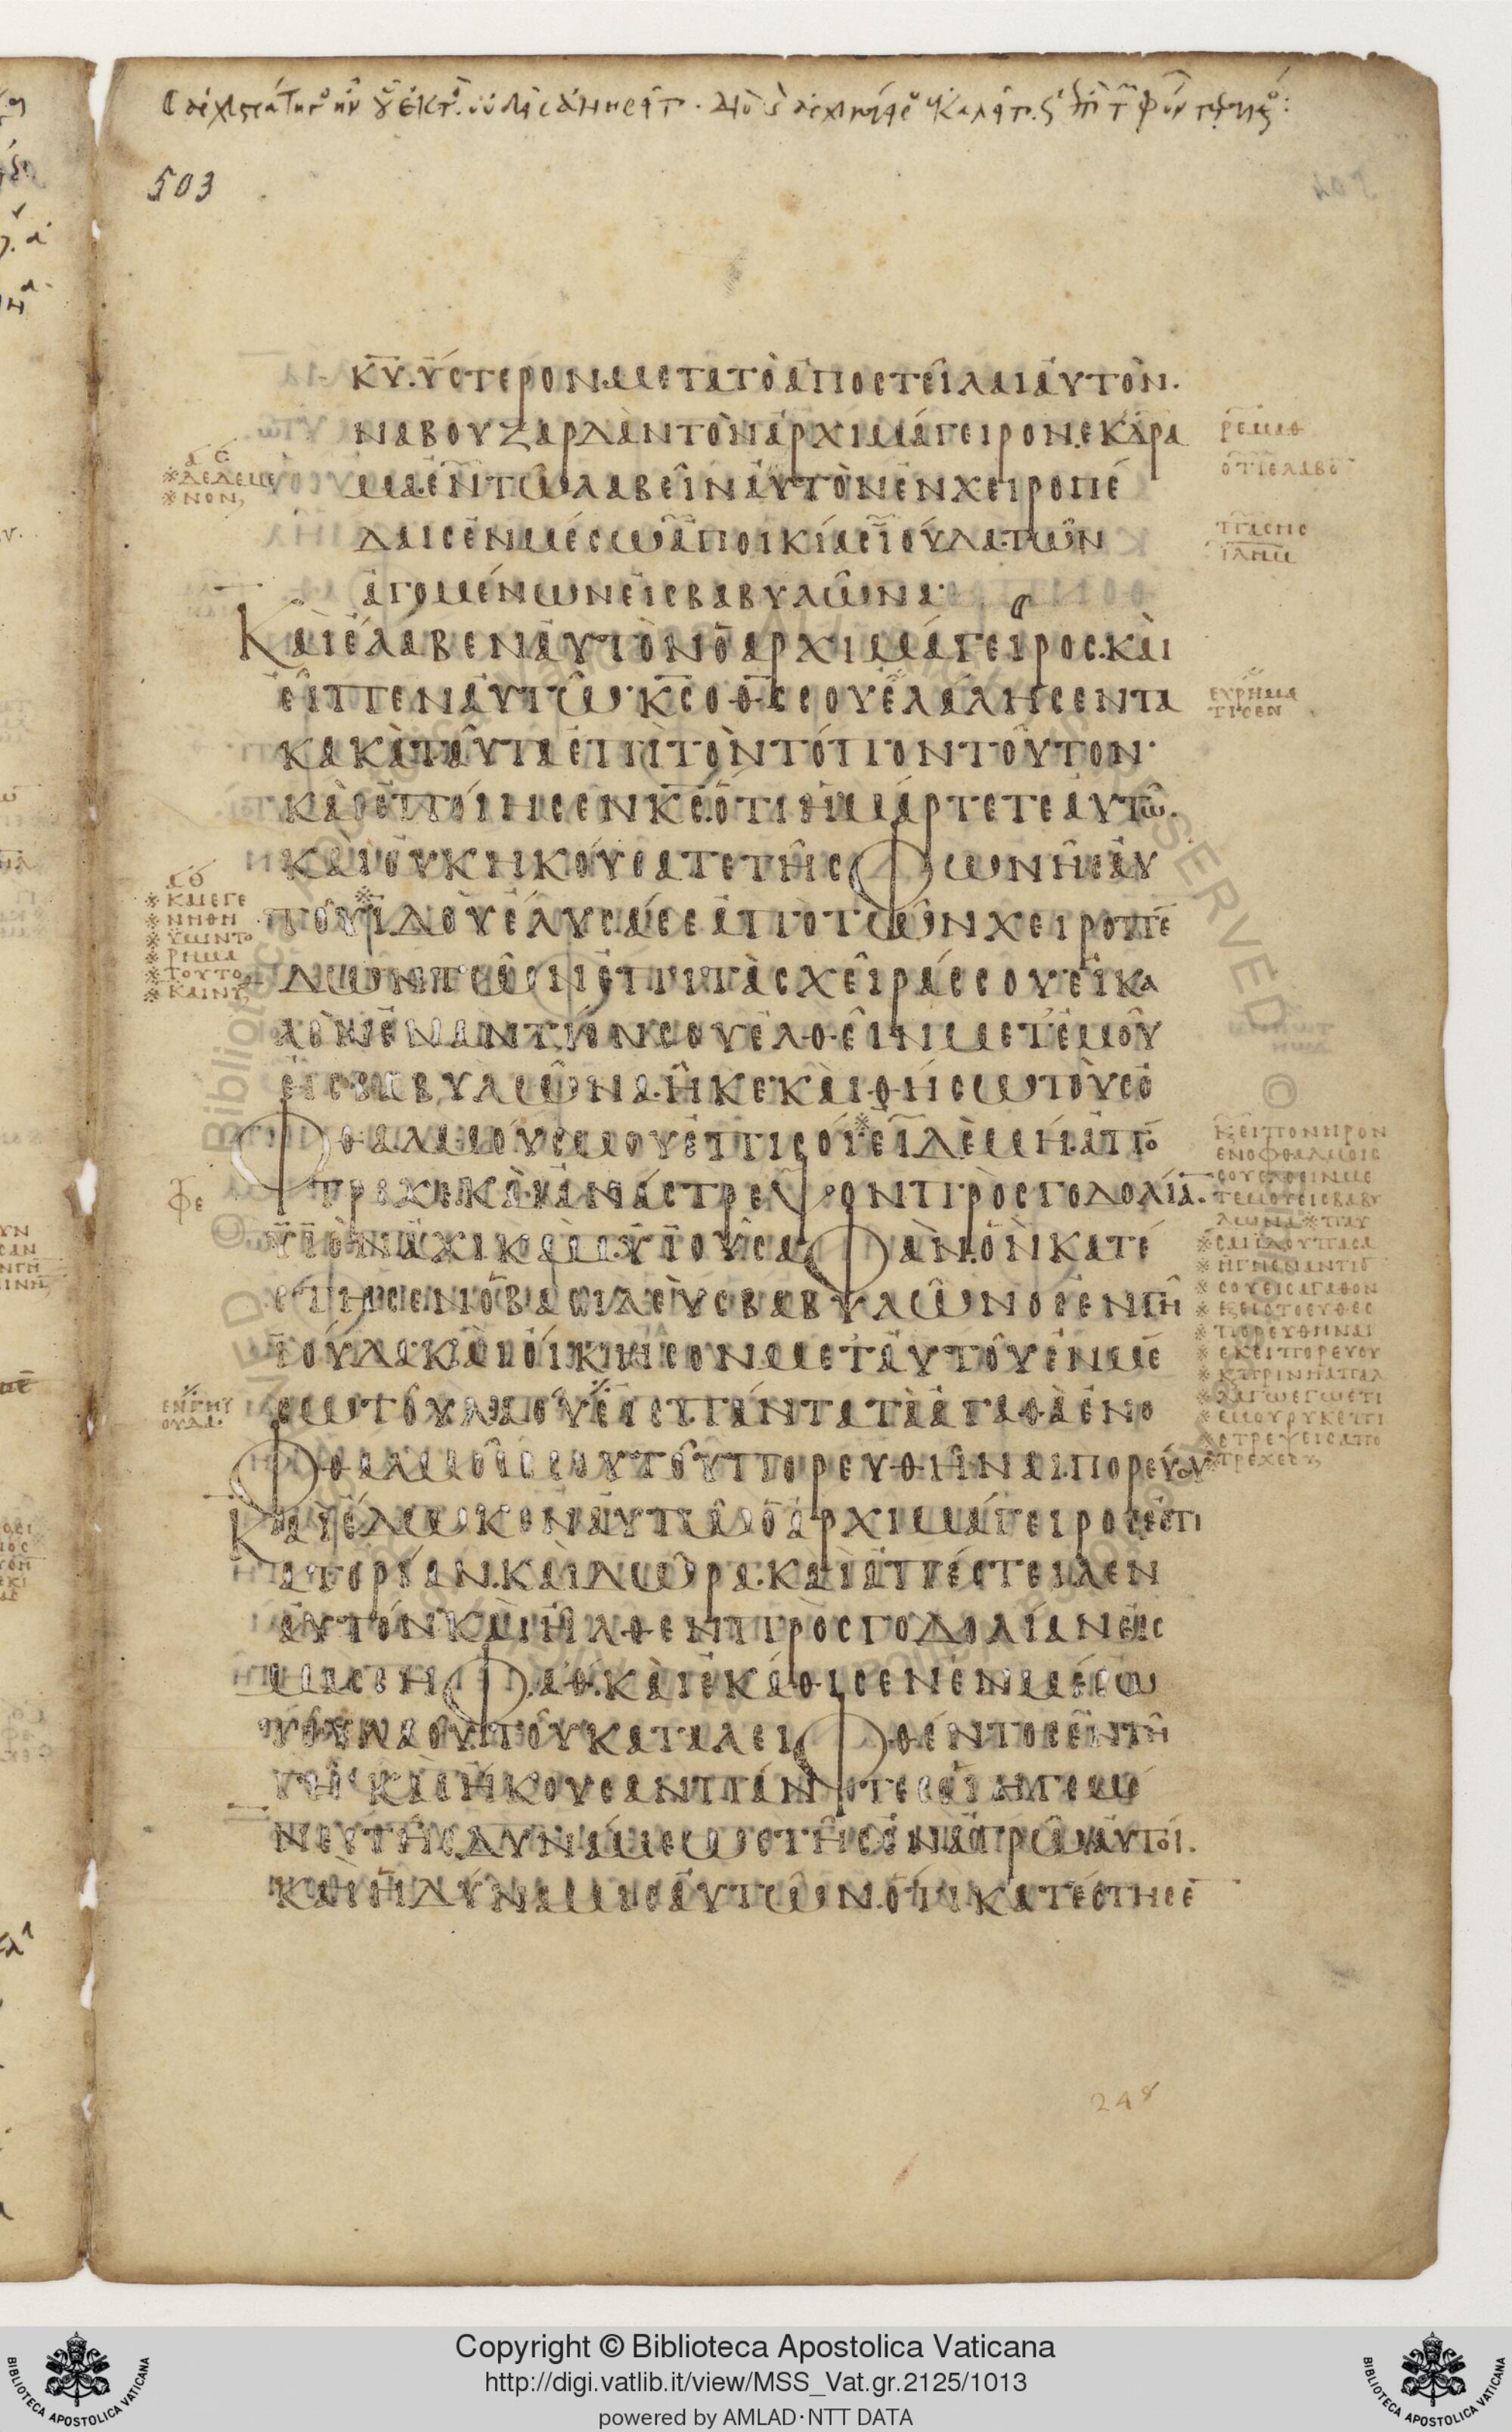 503
ΚΥ. ΥΣΤΕΡΟΝ ΜΕΤΑ ΤΟ ΑΠΟΣΤΕΙΛΑΙ ΑΥΤΟΝ.
ΝΑΒΟΥΖΑΡΔΑΝ ΤΟΝ ΑΡΧΙΜΑΓΕΙΡΟΝ. ΕΚ ΔΑΡΑ
ΜΑ. ΕΝ ΤΩ ΛΑΒΕΙΝ ΑΥΤΟΝ ΕΝ ΧΕΙΡΟΠΕ
ΔΑΙΣ ΕΝ ΜΕΣΩ ΑΠΟΙΚΙΑΣ ΙΟΥΔΑ. ΤΩΝ
ΑΓΟΜΕΝΩΝ ΕΙΣ ΒΑΒΥΛΩΝΑ·
ΚΑΙ ΕΛΑΒΕΝ ΑΥΤΟΝ Ο ΑΡΧΙΜΑΓΕΙΡΟΣ. ΚΑΙ
ΕΙΠΕΝ ΑΥΤΩ· ΚΣ Ο ΘΣ ΣΟΥ ΕΛΑΛΗΣΕΝ ΤΑ
ΚΑΚΑ ΤΑΥΤΑ ΕΠΙ ΤΟΝ ΤΟΠΟΝ ΤΟΥΤΟΝ·
ΚΑΙ ΕΠΟΙΗΣΕΝ ΚΣ. ΟΤΙ ΗΜΑΡΤΕΤΕ ΑΥΤΩ.
ΚΑΙ ΟΥΚ ΗΚΟΥΣΑΤΕ ΤΗΣ ΦΩΝΗΣ ΑΥ
ΤΟΥ· ΙΔΟΥ ΕΛΥΣΑ ΣΕ ΑΠΟ ΤΩΝ ΧΕΙΡΟΠΕ
ΔΩΝ ΤΩΝ ΕΠΙ ΤΑΣ ΧΕΙΡΑΣ ΣΟΥ· ΕΙ ΚΑ
ΛΟΝ ΕΝΑΝΤΙΟΝ ΣΟΥ ΕΛΘΕΙΝ ΜΕΤ ΕΜΟΥ
ΕΙΣ ΒΑΒΥΛΩΝΑ. ΗΚΕ. ΚΑΙ ΘΗΣΩ ΤΟΥΣ Ο
ΦΘΑΛΜΟΥΣ ΜΟΥ ΕΠΙ ΣΟΙ· ΕΙ ΔΕ ΜΗ. ΑΠΟ
ΤΡΕΧΕ. ΚΑΙ ΑΝΑΣΤΡΕΨΟΝ ΠΡΟΣ ΓΟΔΟΛΙΑ.
ΥΙΟΝ ΑΧΙΚΑΜ. ΥΙΟΥ ΣΑΦΑΝ. ΟΝ ΚΑΤΕ
ΣΤΗΣΕΝ Ο ΒΑΣΙΛΕΥΣ ΒΑΒΥΛΩΝΟΣ ΕΝ ΓΗ
ΙΟΥΔΑ. ΚΑΙ ΟΙΚΗΣΟΝ ΜΕΤ ΑΥΤΟΥ ΕΝ ΜΕ
ΣΩ ΤΟΥ ΛΑΟΥ· ΕΙΣ ΠΑΝΤΑ ΤΑ ΑΓΑΘΑ ΕΝ Ο
ΦΘΑΛΜΟΙΣ ΣΟΥ ΤΟΥ ΠΟΡΕΥΘΗΝΑΙ. ΠΟΡΕΥΟΥ
ΚΑΙ ΕΔΩΚΕΝ ΑΥΤΩ Ο ΑΡΧΙΜΑΓΕΙΡΟΣ ΕΣΤΙ
ΑΤΟΡΙΑΝ. ΚΑΙ ΔΩΡΑ. ΚΑΙ ΑΠΕΣΤΕΙΛΕΝ
ΑΥΤΟΝ ΚΑΙ ΗΛΘΕΝ ΠΡΟΣ ΓΟΔΟΛΙΑΝ ΕΙΣ
ΜΑΣΣΗΦΑΘ. ΚΑΙ ΕΚΑΘΙΣΕΝ ΕΝ ΜΕΣΩ
ΤΟΥ ΛΑΟΥ ΤΟΥ ΚΑΤΑΛΕΙΦΘΕΝΤΟΣ ΕΝ ΤΗ
ΓΗ· ΚΑΙ ΗΚΟΥΣΑΝ ΠΑΝΤΕΣ ΟΙ ΗΓΕΜΟ
ΝΕΣ ΤΗΣ ΔΥΝΑΜΕΩΣ ΤΗΣ ΕΝ ΑΓΡΩ ΑΥΤΟΙ.
ΚΑΙ Η ΔΥΝΑΜΙΣ ΑΥΤΩΝ. ΟΤΙ ΚΑΤΕΣΤΗΣΕ
※ ΔΕΔΕΜΕ
※ ΝΟΝ
※ ΚΑΙ ΕΓΕ
※ ΝΗΘΗ
※ ΥΜΙΝ ΤΟ
※ ΡΗΜΑ
※ ΤΟΥΤΟ
※ ΚΑΙ ΝΥ
ΕΝ ΓΗ Ι
ΟΥΔΑ·
ΟΤΙ ΕΛΑΒΟ
ΠΑΣΗΣ
ΙΛΗΜ
ΕΧΡΗΜΑ
ΤΙΣΕΝ
Κ, ΕΙ ΠΟΝΗΡΟΝ
ΕΝ ΟΦΘΑΛΜΟΙΣ
ΣΟΥ ΕΛΘΕΙΝ ΜΕ
Τ ΕΜΟΥ ΕΙΣ ΒΑΒΥ
ΛΩΝΑ ※ ΠΑΥ
※ ΣΑΙ ΙΔΟΥ ΠΑΣΑ
※ Η ΓΗ ΕΝΑΝΤΙΟ
※ ΣΟΥ ΕΙΣ ΑΓΑΘΟΝ
※ Κ, ΕΙΣ ΤΟ ΕΥΘΕΣ
※ ΠΟΡΕΥΘΗΝΑΙ
※ ΕΚΕΙ ΠΟΡΕΥΟΥ
※ Κ, ΠΡΙΝ Η ΑΠΑΛ
※ ΛΑΓΩ ΕΓΩ ΕΤΙ
※ ΕΜΟΥ ΟΥΚ ΕΠΙ
※ ΣΤΡΕΨΕΙΣ ΑΠΟ
※ ΤΡΕΧΕ
248
Copyright © Biblioteca Apostolica Vaticana
http://digi.vatlib.it/view/MSS_Vat.gr.2125/1013
powered by AMLAD·NTT DATA
BIBLIOTECA APOSTOLICA VATICANA
BIBLIOTECA APOSTOLICA VATICANA